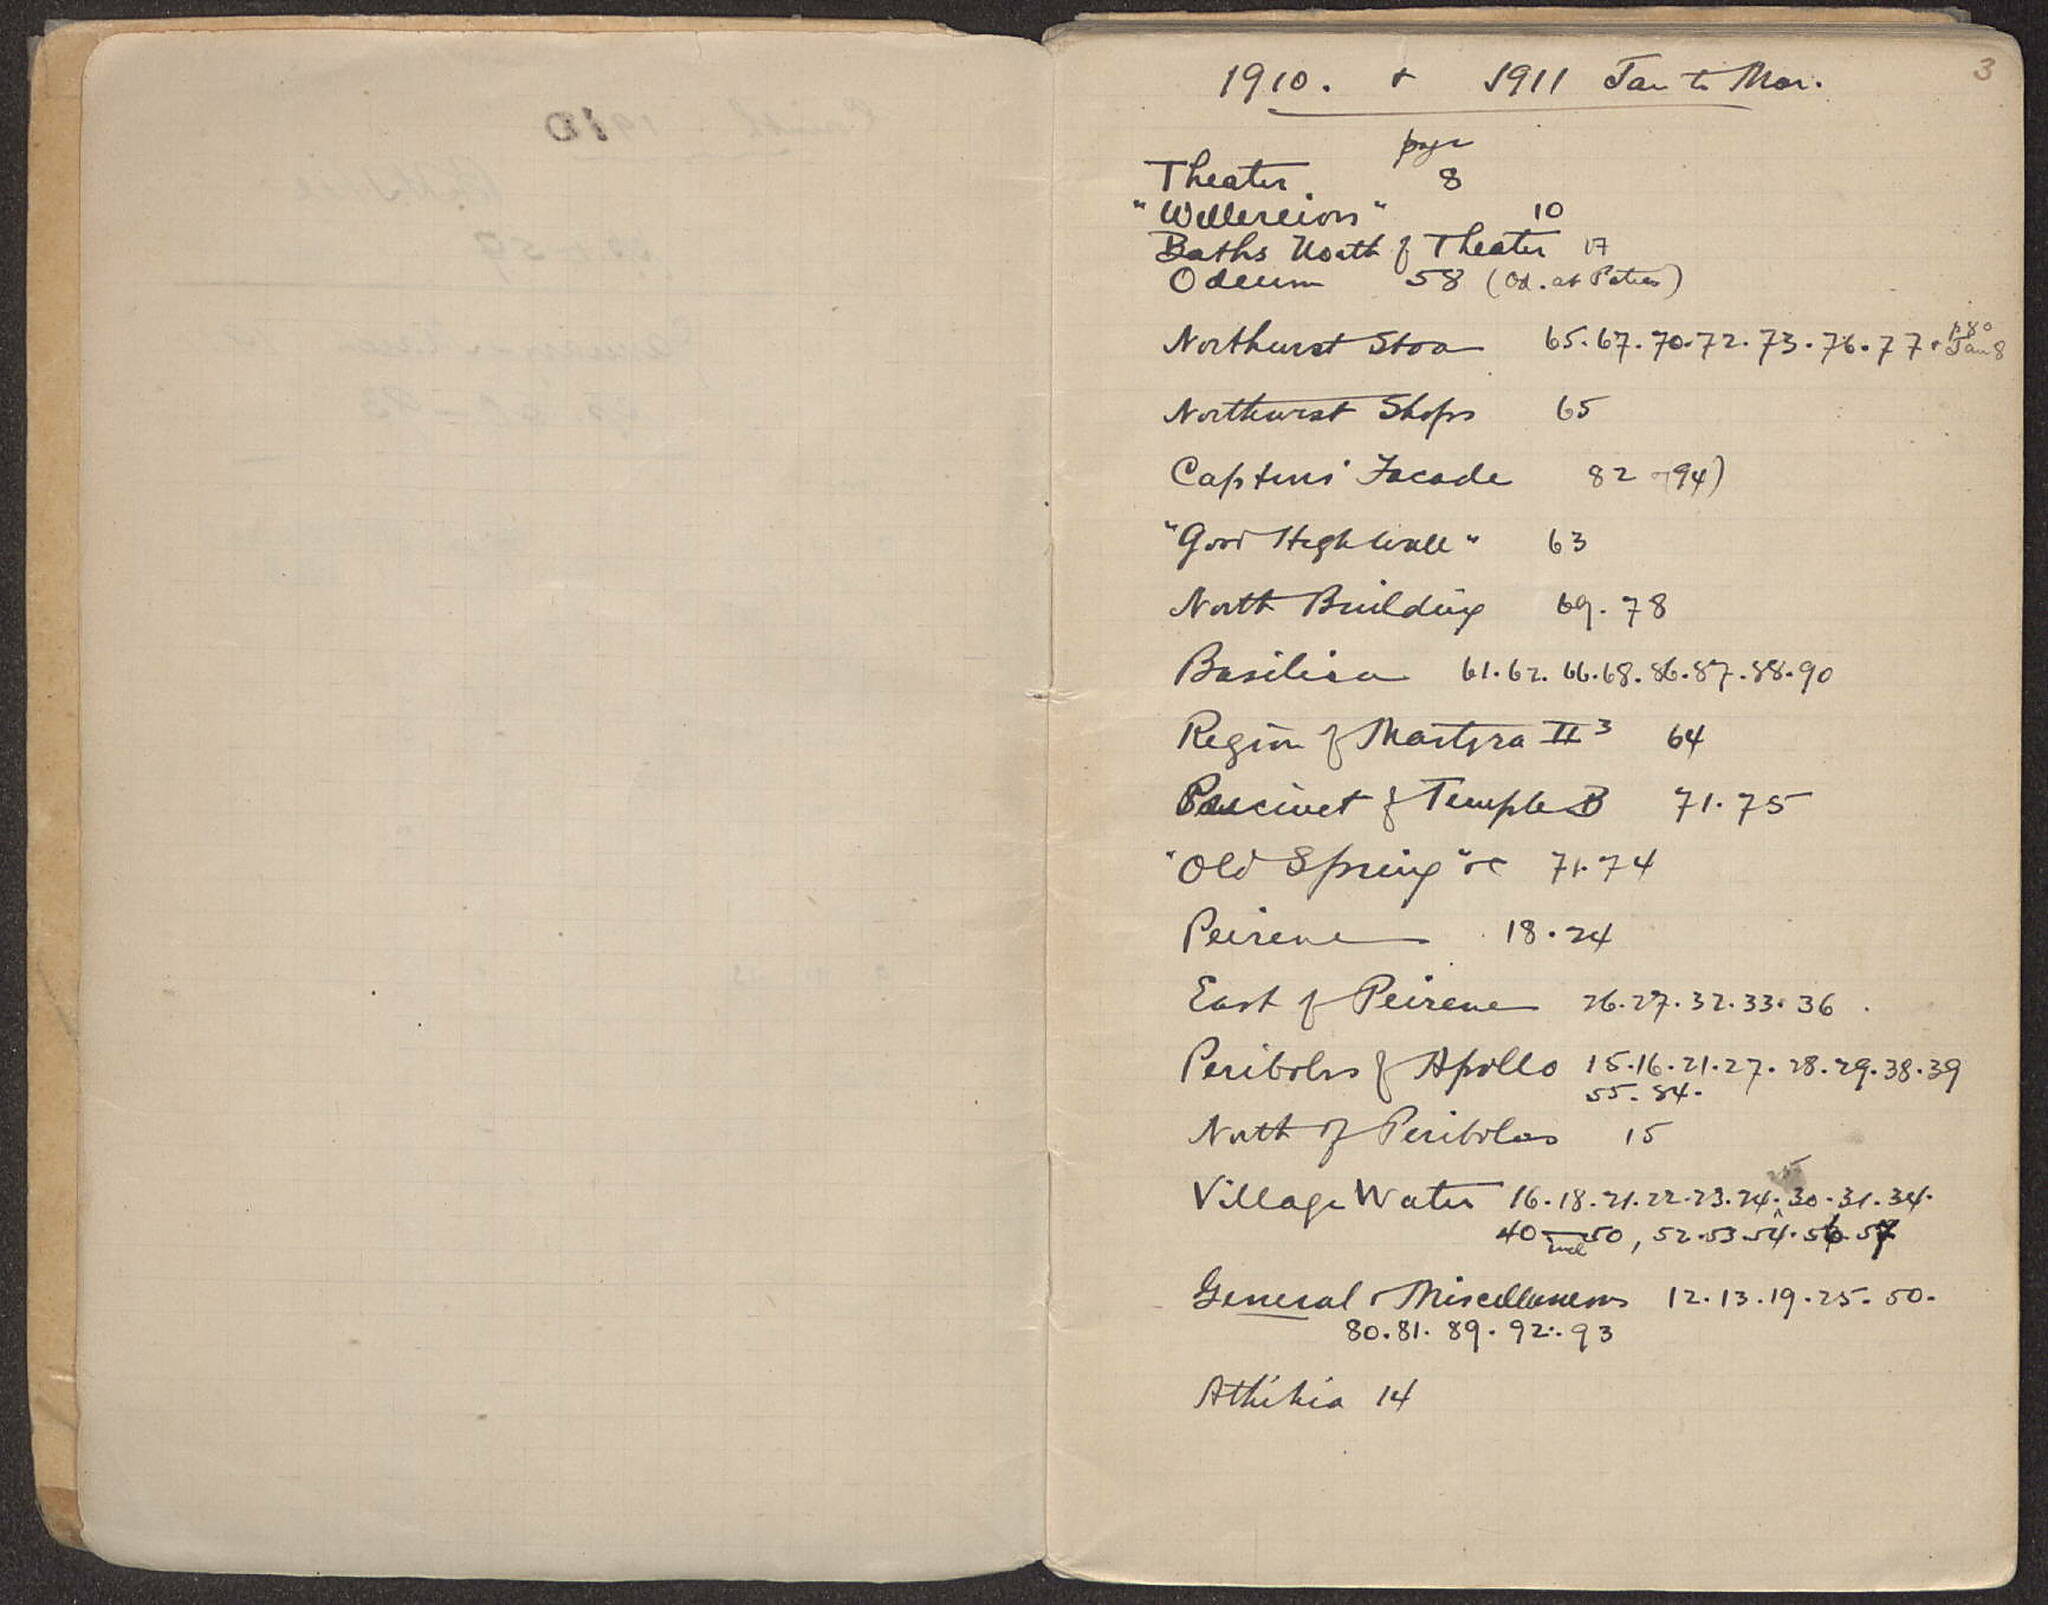 3
1910. + 1911 Jan to Mar.
page
Theater. 8
"Wellereion" 10
Baths North of Theater 17
Odeum 58 (Od. at Patras)
Northwest Stoa 65. 67. 70. 72. 73. 76. 77 + p 80 Jan 8
Northwest Shops 65
Captives' Facade 82 94)
"Good High Wall" 63
North Building 69. 78
Basilica 61. 62. 66. 68. 86. 87. 88. 90
Region of Martyra II 3 64
Precinct of Temple B 71. 75
"Old Spring" 71. 74
Peirene 18. 24
East of Peirene 26. 27. 32. 33. 36.
Peribolos of Apollo 15. 16. 21. 27. 28. 29. 38. 39
55. 84.
North of Peribolos 15
Village Water 16. 18. 21. 22. 23. 24. 30. 31. 34.
40 — 50, 52. 53. 54. 56. 57
incl
General + Miscellaneous 12. 13. 19. 25. 50.
80. 81. 89. 92. 93
Athikia 14